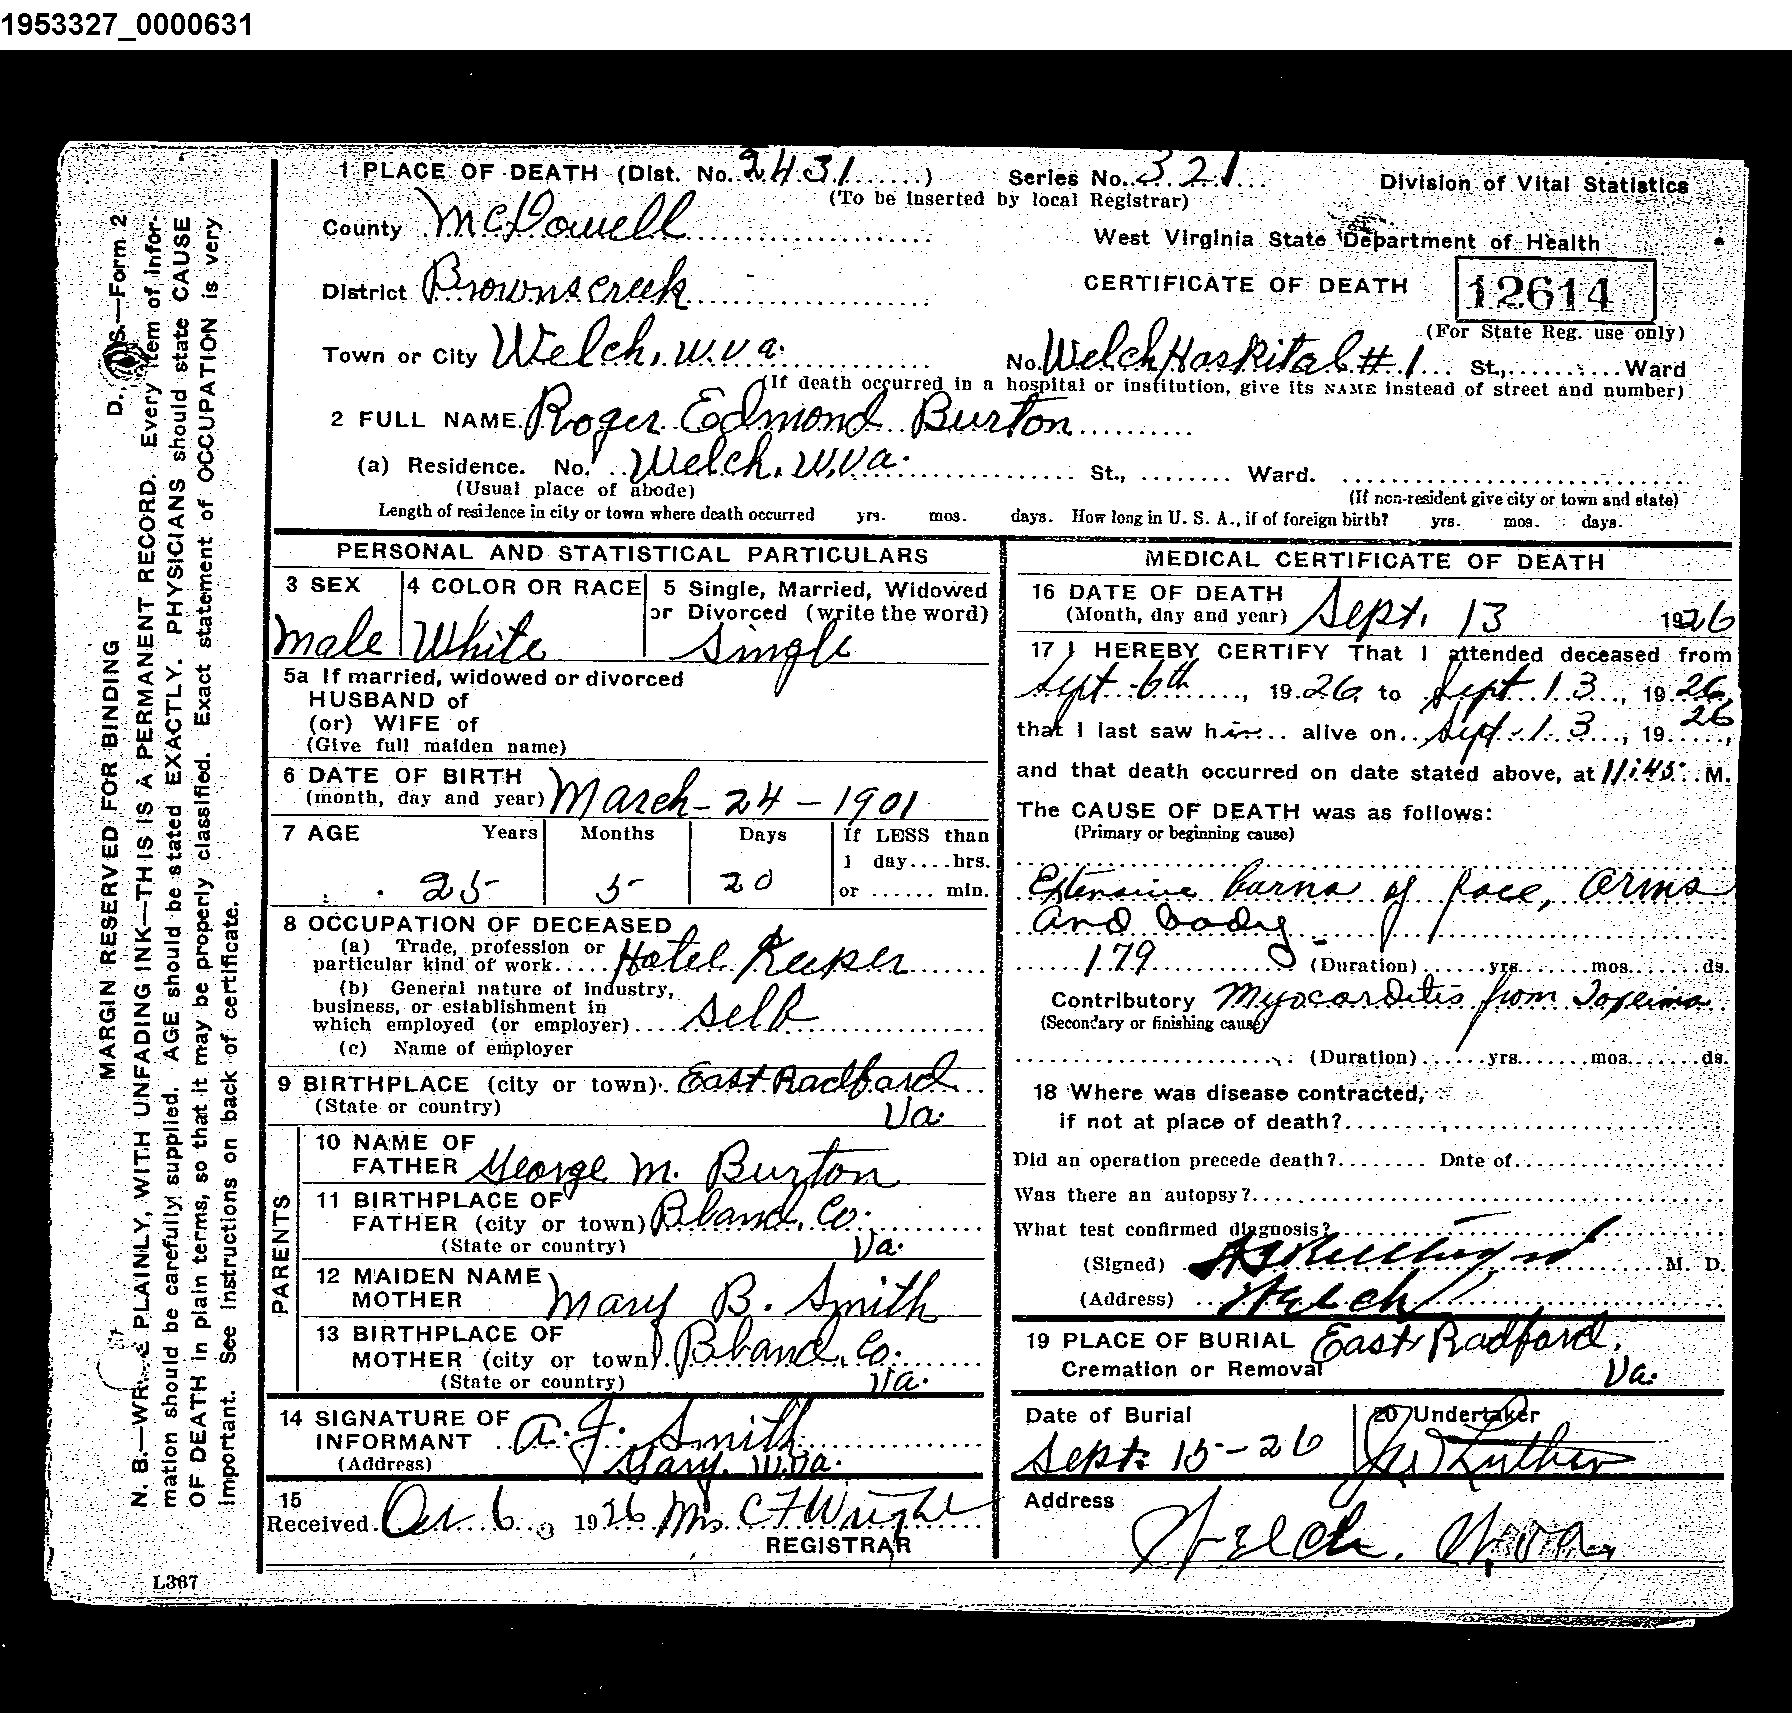 1953327_0000631
1 PLACE OF DEATH (Dist. No. 2431) Series No. 321 Division of Vital Statistics
(To be inserted by local Registrar)
County McDowell
West Virginia State Department of Health
District Brownscreek
CERTIFICATE OF DEATH 12614
(For State Reg. use only)
Town or City Welch, W.Va. No. Welch Hospital #1 St., Ward
(If death occurred in a hospital or institution, give its NAME instead of street and number)
2 FULL NAME Roger Edmond Burton
(a) Residence. No. Welch, W.Va. St., Ward.
(Usual place of abode) (If non-resident give city or town and state)
Length of residence in city or town where death occurred yrs. mos. days. How long in U. S. A., if of foreign birth? yrs. mos. days.
PERSONAL AND STATISTICAL PARTICULARS
3 SEX 4 COLOR OR RACE 5 Single, Married, Widowed
or Divorced (write the word)
Male White Single
5a If married, widowed or divorced
HUSBAND of
(or) WIFE of
(Give full maiden name)
6 DATE OF BIRTH
(month, day and year) March - 24 - 1901
7 AGE Years Months Days If LESS than
1 day....hrs.
25 5 20 or ...... min.
8 OCCUPATION OF DECEASED
(a) Trade, profession or
particular kind of work Hotel Keeper
(b) General nature of industry,
business, or establishment in
which employed (or employer) Self
(c) Name of employer
9 BIRTHPLACE (city or town) East Radford
(State or country) Va.
PARENTS
10 NAME OF
FATHER George M. Burton
11 BIRTHPLACE OF
FATHER (city or town) Bland, Co.
(State or country) Va.
12 MAIDEN NAME
MOTHER Mary B. Smith
13 BIRTHPLACE OF
MOTHER (city or town) Bland, Co.
(State or country) Va.
14 SIGNATURE OF
INFORMANT A. F. Smith
(Address) Gary, W.Va.
15
Received Oct 6 1926 Mrs C F Wright
REGISTRAR
MEDICAL CERTIFICATE OF DEATH
16 DATE OF DEATH
(Month, day and year) Sept. 13 1926
17 I HEREBY CERTIFY That I attended deceased from
Sept 6th, 1926 to Sept 13, 1926
that I last saw him alive on Sept 13, 19 26,
and that death occurred on date stated above, at 11:45 M.
The CAUSE OF DEATH was as follows:
(Primary or beginning cause)
Extensive burns of face, arms
and body
179 (Duration) yrs. mos. ds.
Contributory Myocarditis from Toxemia
(Secondary or finishing cause)
(Duration) yrs. mos. ds.
18 Where was disease contracted,
if not at place of death?
Did an operation precede death? Date of
Was there an autopsy?
What test confirmed diagnosis?
(Signed) M. D.
(Address) Welch
19 PLACE OF BURIAL East Radford,
Cremation or Removal Va.
Date of Burial 20 Undertaker
Sept. 15-26 Luther
Address
Welch, W.Va.
MARGIN RESERVED FOR BINDING
D. V. S.—Form 2
N. B.—WRITE PLAINLY, WITH UNFADING INK—THIS IS A PERMANENT RECORD. Every item of infor-
mation should be carefully supplied. AGE should be stated EXACTLY. PHYSICIANS should state CAUSE
OF DEATH in plain terms, so that it may be properly classified. Exact statement of OCCUPATION is very
important. See instructions on back of certificate.
L367